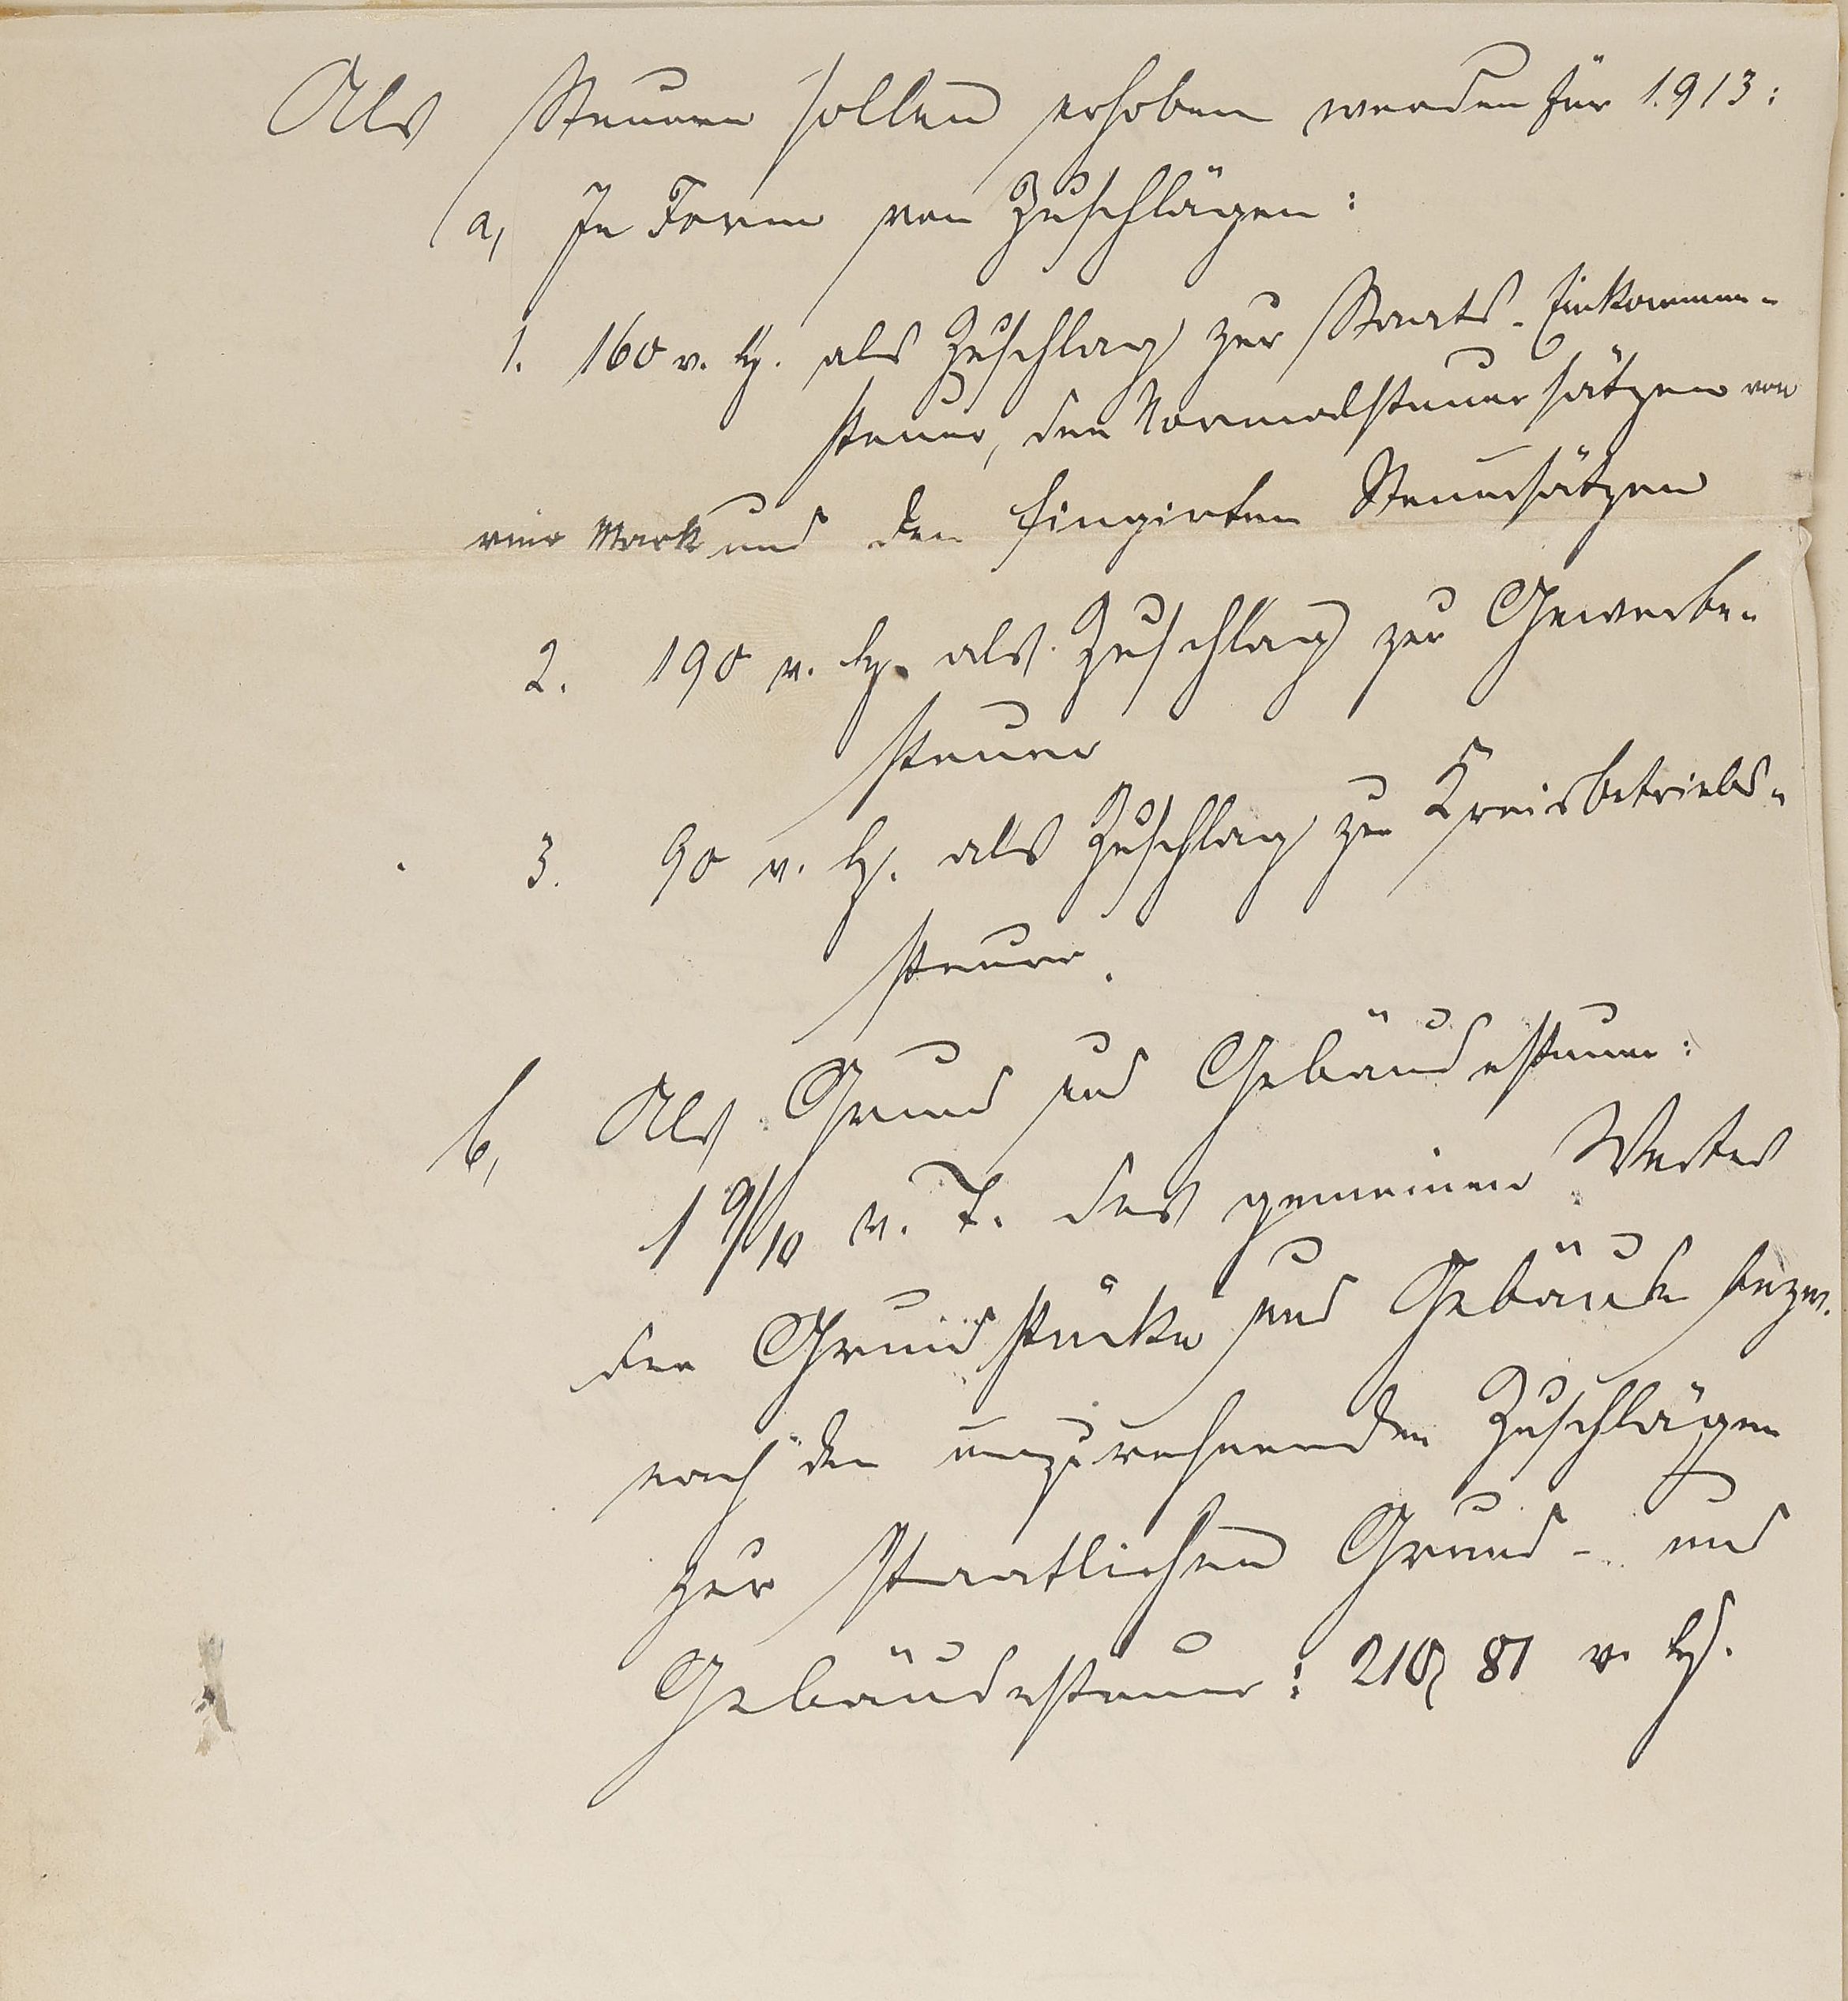 Als Steuern sollen erhoben werden für 1913:
a, In Form von Zuschlägen:
1. 160 v. H. als Zuschlag zur Staats-Einkommen-
steuer, den Normalsteuersätzen von
vier Mark und den fingirten Steuersätzen
2. 190 v. H. als Zuschlag zur Gewerbe-
steuer
3. 90 v. H. als Zuschlag zur Kreisbetriebs-
steuer.
b, Als Grund und Gebäudesteuer:
1 9/10 v. T. des gemeinen Wertes
der Grundstücke und Gebäude bezw.
nach den umzurechnenden Zuschlägen
zur staatlichen Grund- und
Gebäudesteuer: 210, 81 v. H.